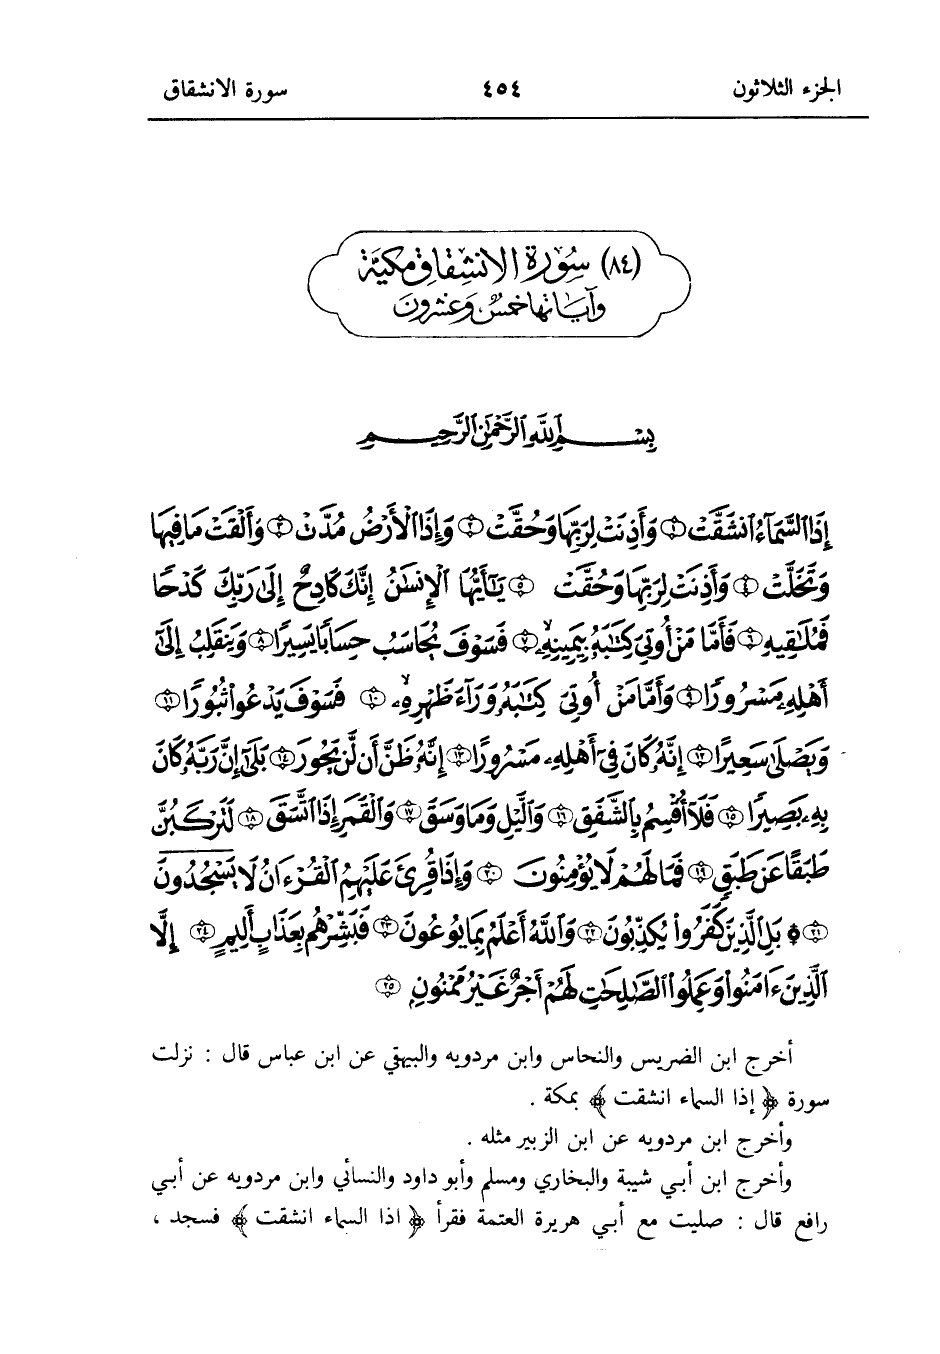 الجزء الثلاثون ٤٥٤ سورة الانشقاق
(٨٤) سُورَة الانشِقاقِ مكيَّة
وآيَاتها خمسٌ وَعشرون
بِسْمِ ٱللَّهِ ٱلرَّحْمَٰنِ ٱلرَّحِيمِ
إِذَا ٱلسَّمَآءُ ٱنشَقَّتْ ۝١ وَأَذِنَتْ لِرَبِّهَا وَحُقَّتْ ۝٢ وَإِذَا ٱلْأَرْضُ مُدَّتْ ۝٣ وَأَلْقَتْ مَا فِيهَا
وَتَخَلَّتْ ۝٤ وَأَذِنَتْ لِرَبِّهَا وَحُقَّتْ ۝٥ يَـٰٓأَيُّهَا ٱلْإِنسَـٰنُ إِنَّكَ كَادِحٌ إِلَىٰ رَبِّكَ كَدْحًا
فَمُلَـٰقِيهِ ۝٦ فَأَمَّا مَنْ أُوتِىَ كِتَـٰبَهُۥ بِيَمِينِهِۦ ۝٧ فَسَوْفَ يُحَاسَبُ حِسَابًا يَسِيرًا ۝٨ وَيَنقَلِبُ إِلَىٰٓ
أَهْلِهِۦ مَسْرُورًا ۝٩ وَأَمَّا مَنْ أُوتِىَ كِتَـٰبَهُۥ وَرَآءَ ظَهْرِهِۦ ۝١٠ فَسَوْفَ يَدْعُوا۟ ثُبُورًا ۝١١
وَيَصْلَىٰ سَعِيرًا ۝١٢ إِنَّهُۥ كَانَ فِىٓ أَهْلِهِۦ مَسْرُورًا ۝١٣ إِنَّهُۥ ظَنَّ أَن لَّن يَحُورَ ۝١٤ بَلَىٰٓ إِنَّ رَبَّهُۥ كَانَ
بِهِۦ بَصِيرًا ۝١٥ فَلَآ أُقْسِمُ بِٱلشَّفَقِ ۝١٦ وَٱلَّيْلِ وَمَا وَسَقَ ۝١٧ وَٱلْقَمَرِ إِذَا ٱتَّسَقَ ۝١٨ لَتَرْكَبُنَّ
طَبَقًا عَن طَبَقٍ ۝١٩ فَمَا لَهُمْ لَا يُؤْمِنُونَ ۝٢٠ وَإِذَا قُرِئَ عَلَيْهِمُ ٱلْقُرْءَانُ لَا يَسْجُدُونَ
۝٢١ ۩ بَلِ ٱلَّذِينَ كَفَرُوا۟ يُكَذِّبُونَ ۝٢٢ وَٱللَّهُ أَعْلَمُ بِمَا يُوعُونَ ۝٢٣ فَبَشِّرْهُم بِعَذَابٍ أَلِيمٍ ۝٢٤ إِلَّا
ٱلَّذِينَ ءَامَنُوا۟ وَعَمِلُوا۟ ٱلصَّـٰلِحَـٰتِ لَهُمْ أَجْرٌ غَيْرُ مَمْنُونٍ ۝٢٥
أخرج ابن الضريس والنحاس وابن مردويه والبيهقي عن ابن عباس قال : نزلت
سورة ﴿ إذا السماء انشقت ﴾ بمكة .
وأخرج ابن مردويه عن ابن الزبير مثله .
وأخرج ابن أبي شيبة والبخاري ومسلم وأبو داود والنسائي وابن مردويه عن أبي
رافع قال : صليت مع أبي هريرة العتمة فقرأ ﴿ اذا السماء انشقت ﴾ فسجد ،